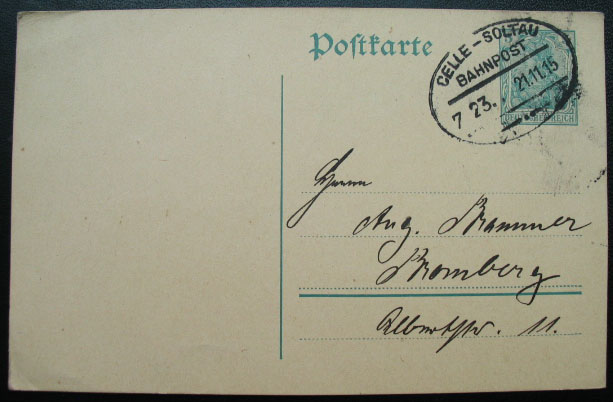 Postkarte
CELLE - SOLTAU
BAHNPOST
7 23. 21.11.15
REICH
Herrn
Aug. Brammer
Bromberg
Albertstr. 11.